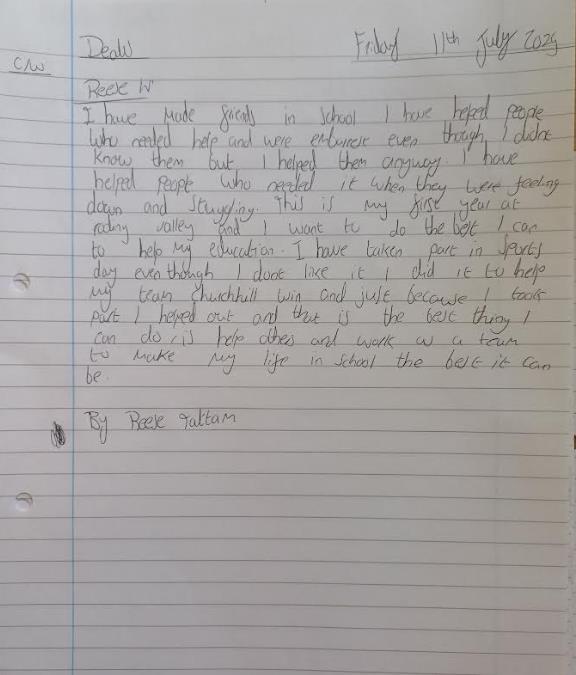 C/W
Friday 11th July 2025
Reece W
I have made friends in school I have helped people
who needed help and were even though I didnt
know them but I helped them anyway. I have
helped people who needed it when they were feeling
down and stuggling. This is my first year at
roding valley and I want to do the best I can
to help my education. I have taken part in sports
day even though I dont like it I did it to help
my team churchhill win and just because I took
part I heped out and that is the best thing I
can do, is help others and work as a team
to make my life in school the best it can
be.
By Reece